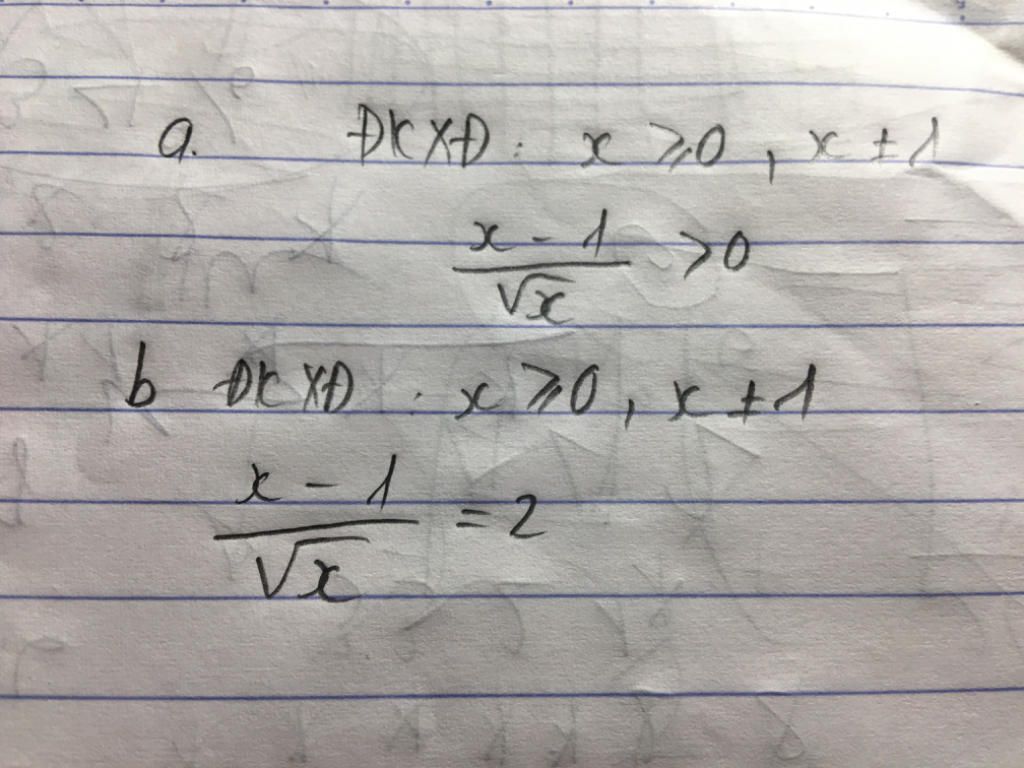 a. ĐKXĐ: x ⩾ 0, x ± 1
x - 1 / √x > 0
b ĐKXĐ: x ⩾ 0, x ± 1
x - 1 / √x = 2